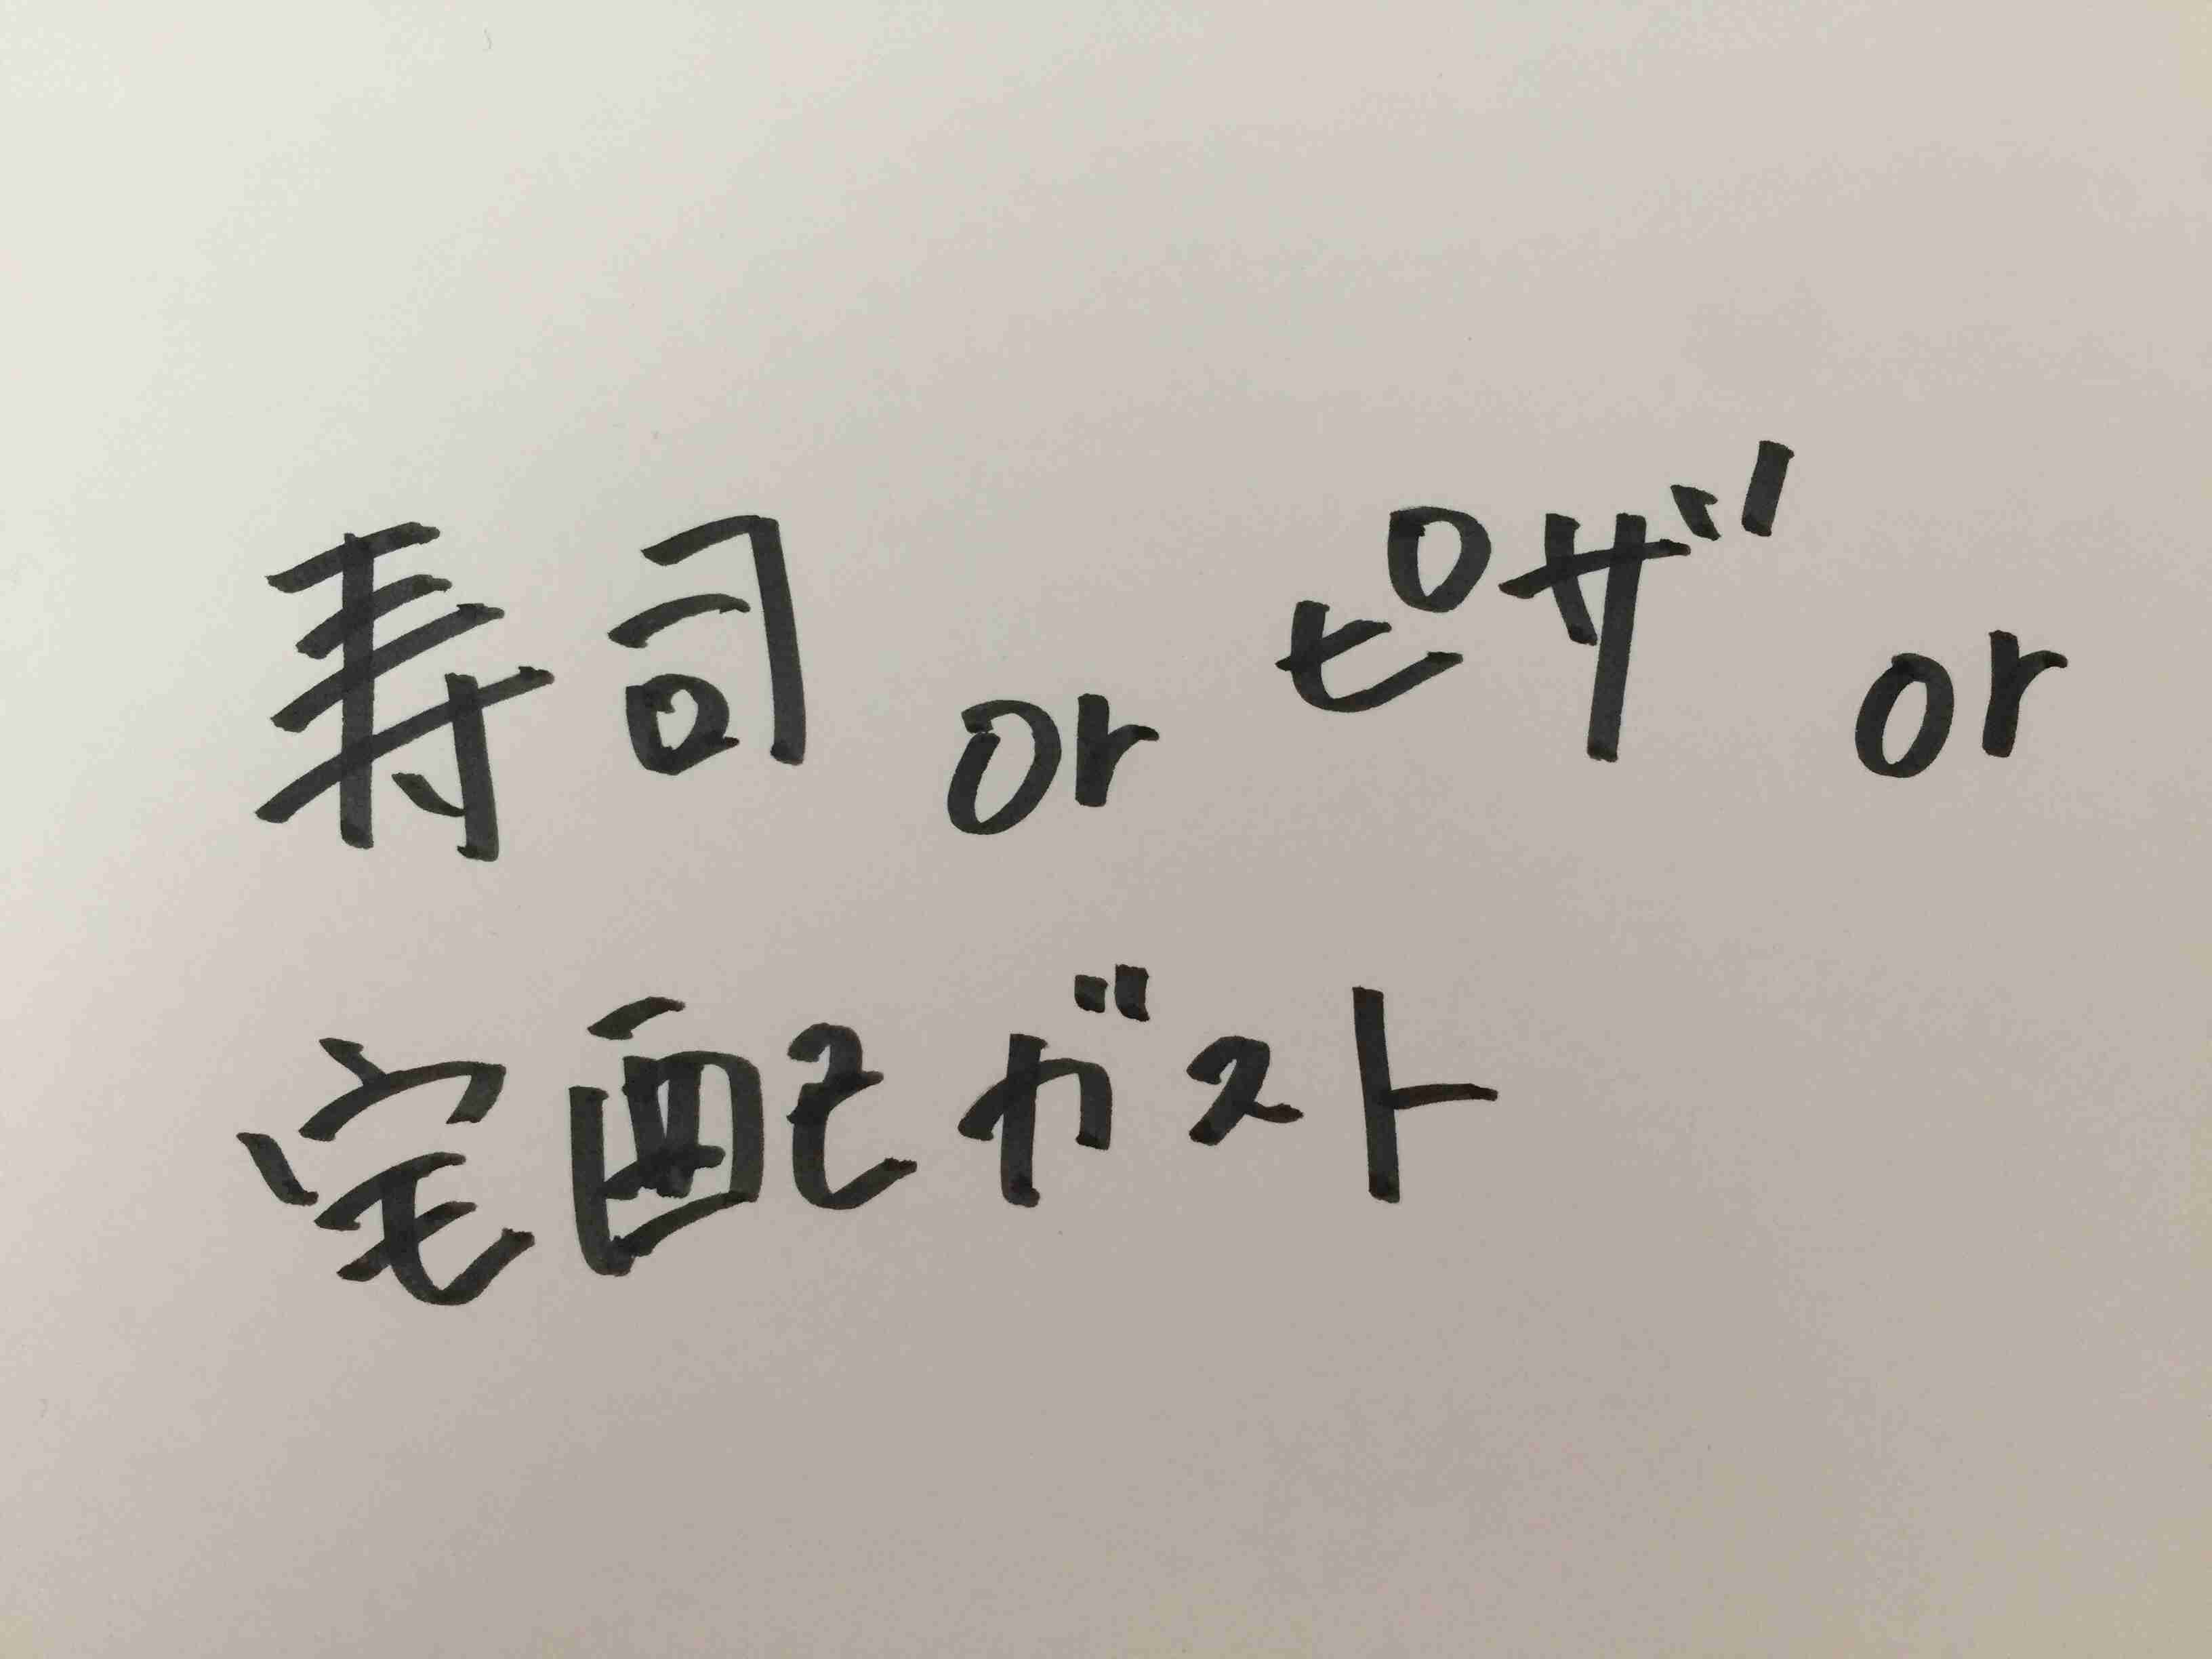 寿司 or ピザ or
宅配ガスト